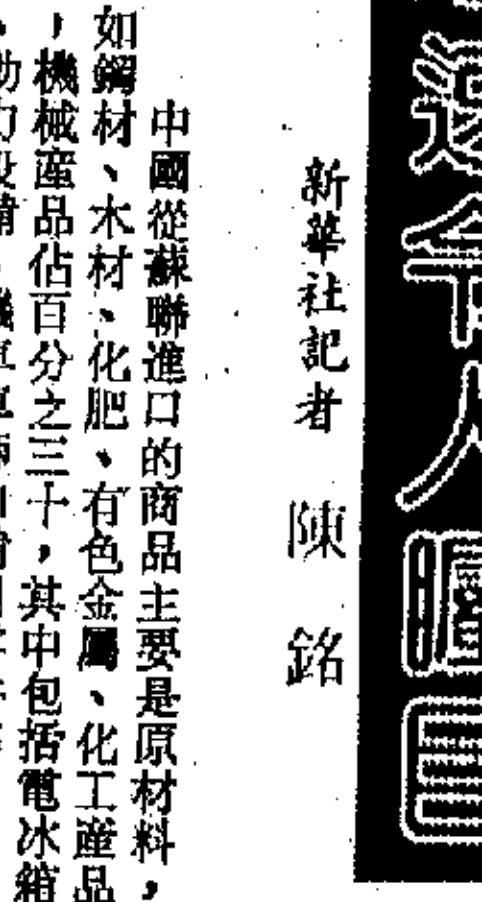 速令人矚目
新華社記者 陳 銘
中國從蘇聯進口的商品主要是原材料，
如鋼材、木材、化肥、有色金屬、化工産品
，機械産品佔百分之三十，其中包括電冰箱